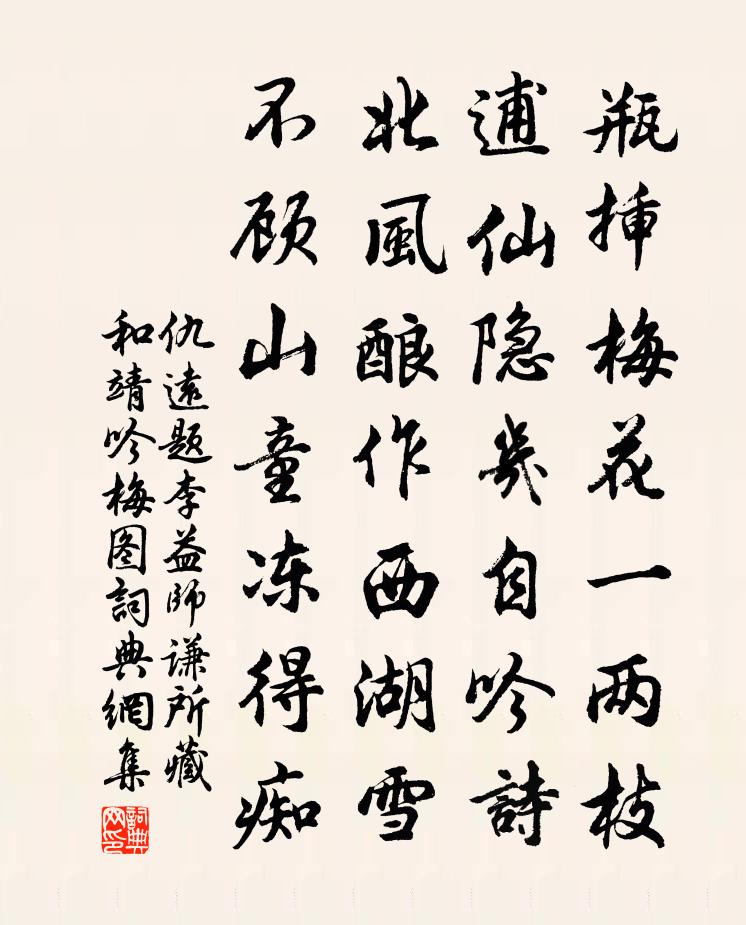 瓶揷梅花一两枝
逋仙隐几自吟詩
北風酿作西湖雪
不顾山童冻得痴
仇遠题李益師谦所藏
和靖吟梅图詞典網集
詞典网印